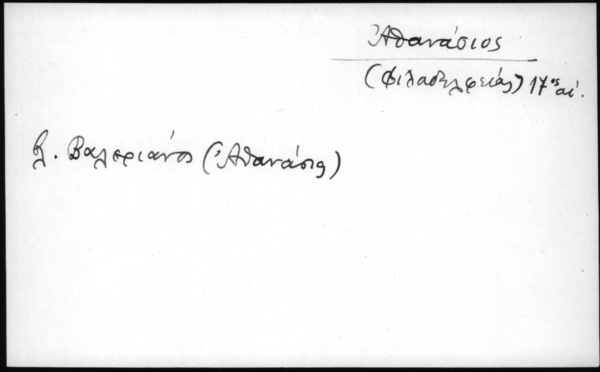 Ἀθανάσιος
(Φιλαδελφείας) 17ος αἰ.
βλ. Βαλεριάνος (Ἀθανάσιος)